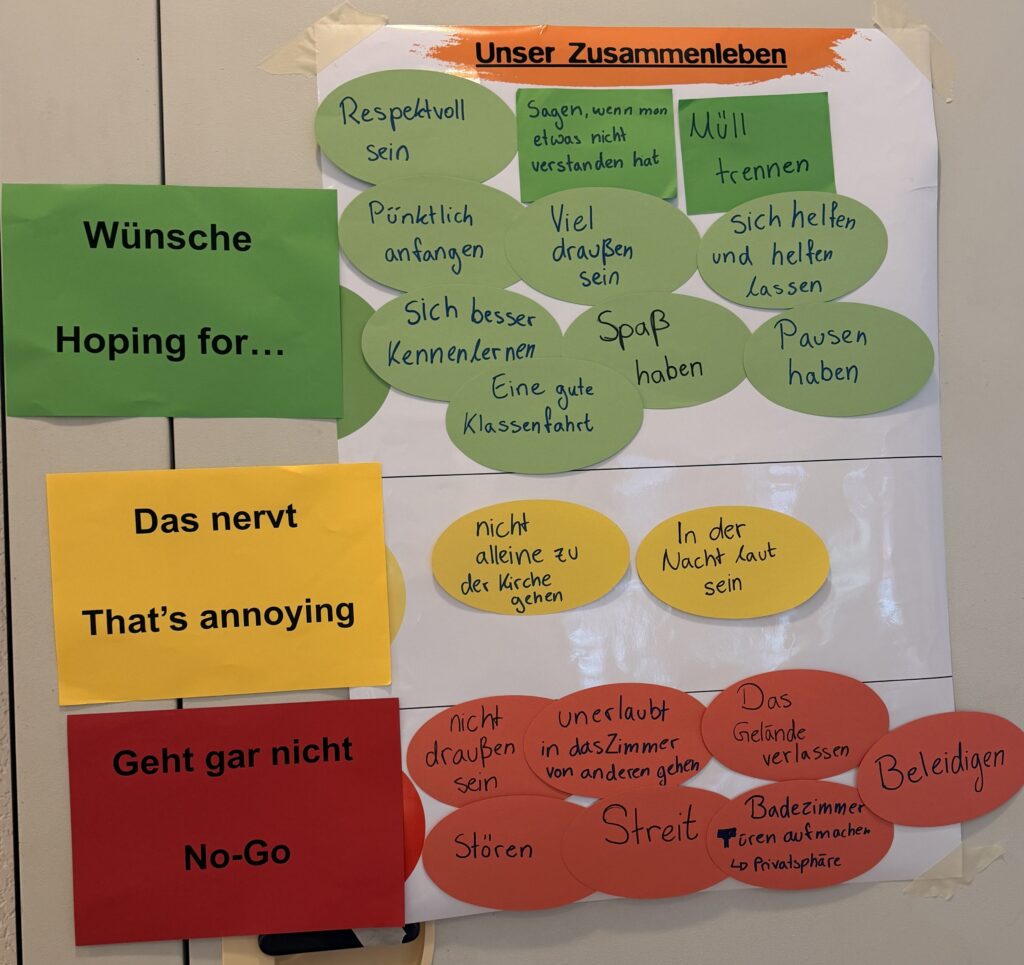 Unser Zusammenleben
Wünsche
Hoping for...
Respektvoll
sein
Sagen, wenn man
etwas nicht
verstanden hat
Müll
trennen
Pünktlich
anfangen
Viel
draußen
sein
sich helfen
und helfen
lassen
Sich besser
Kennenlernen
Spaß
haben
Pausen
haben
Eine gute
Klassenfahrt
Das nervt
That's annoying
nicht
alleine zu
der Kirche
gehen
In der
Nacht laut
sein
Geht gar nicht
No-Go
nicht
draußen
sein
unerlaubt
in das Zimmer
von anderen gehen
Das
Gelände
verlassen
Beleidigen
Stören
Streit
Badezimmer
Türen aufmachen
↳ Privatsphäre